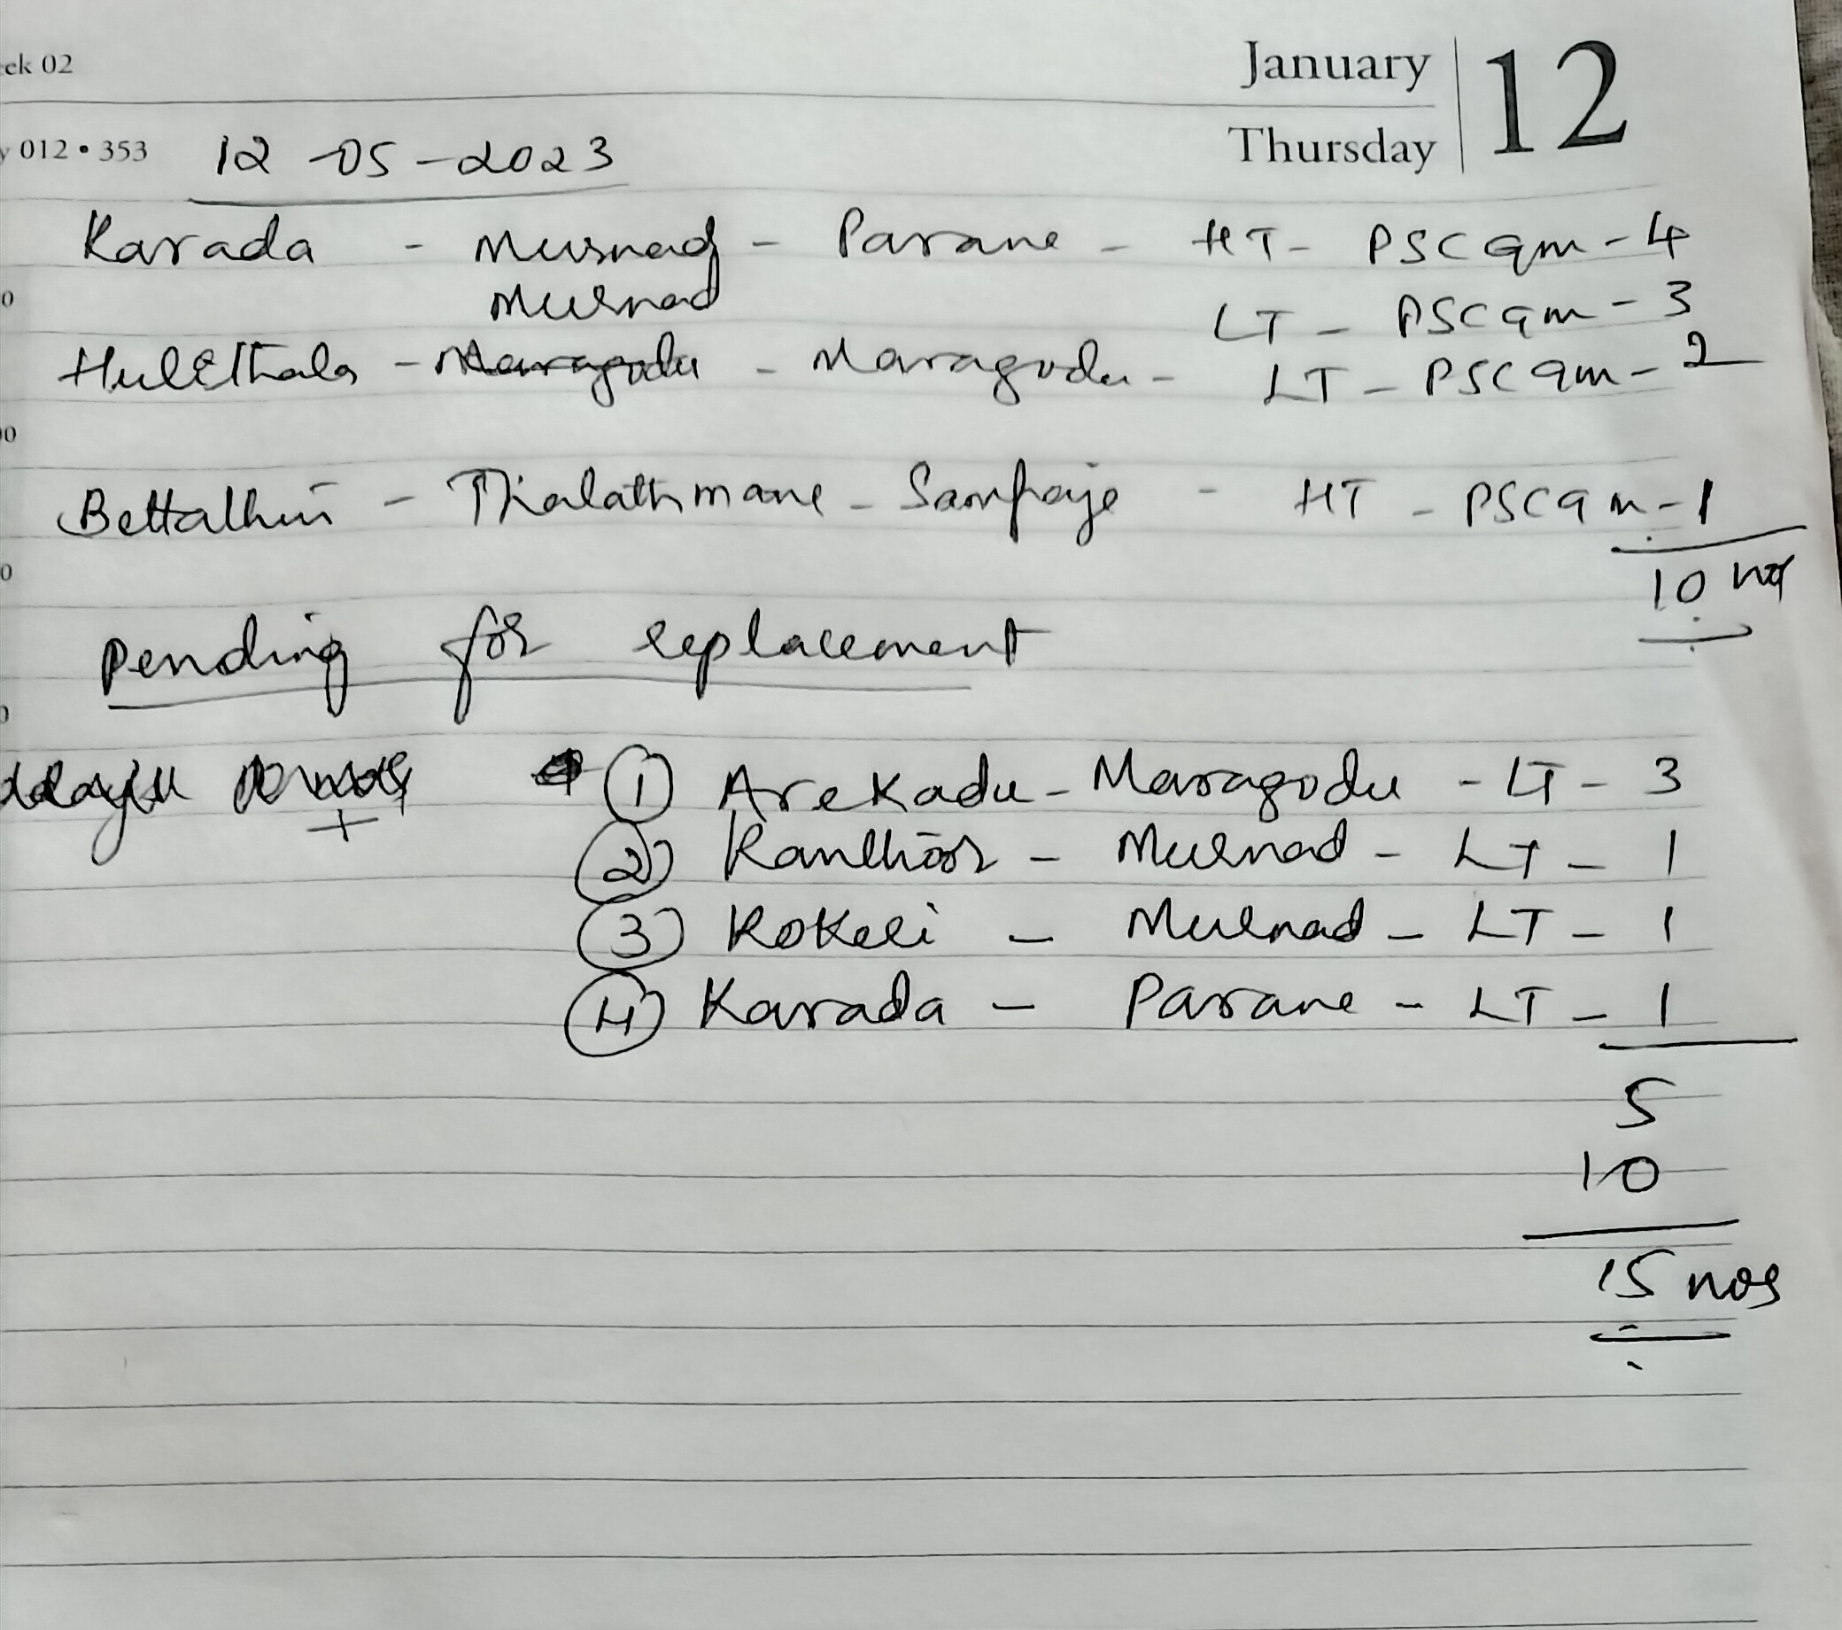 ek 02
January 12
012 • 353 12-05-2023 Thursday
Karada - Murnad - Parane - HT - PSC 9m - 4
Murnad LT - PSC 9m - 3
Hulithala - Maragodu - Maragodu - LT - PSC 9m - 2
Bettathur - Thalathmane - Sampaje - HT - PSC 9m - 1
10 nos
Pending for replacement
① Arekadu - Maragodu - LT - 3
② Kanthoor - Murnad - LT - 1
③ Kokeri - Murnad - LT - 1
④ Karada - Parane - LT - 1
5
10
15 nos